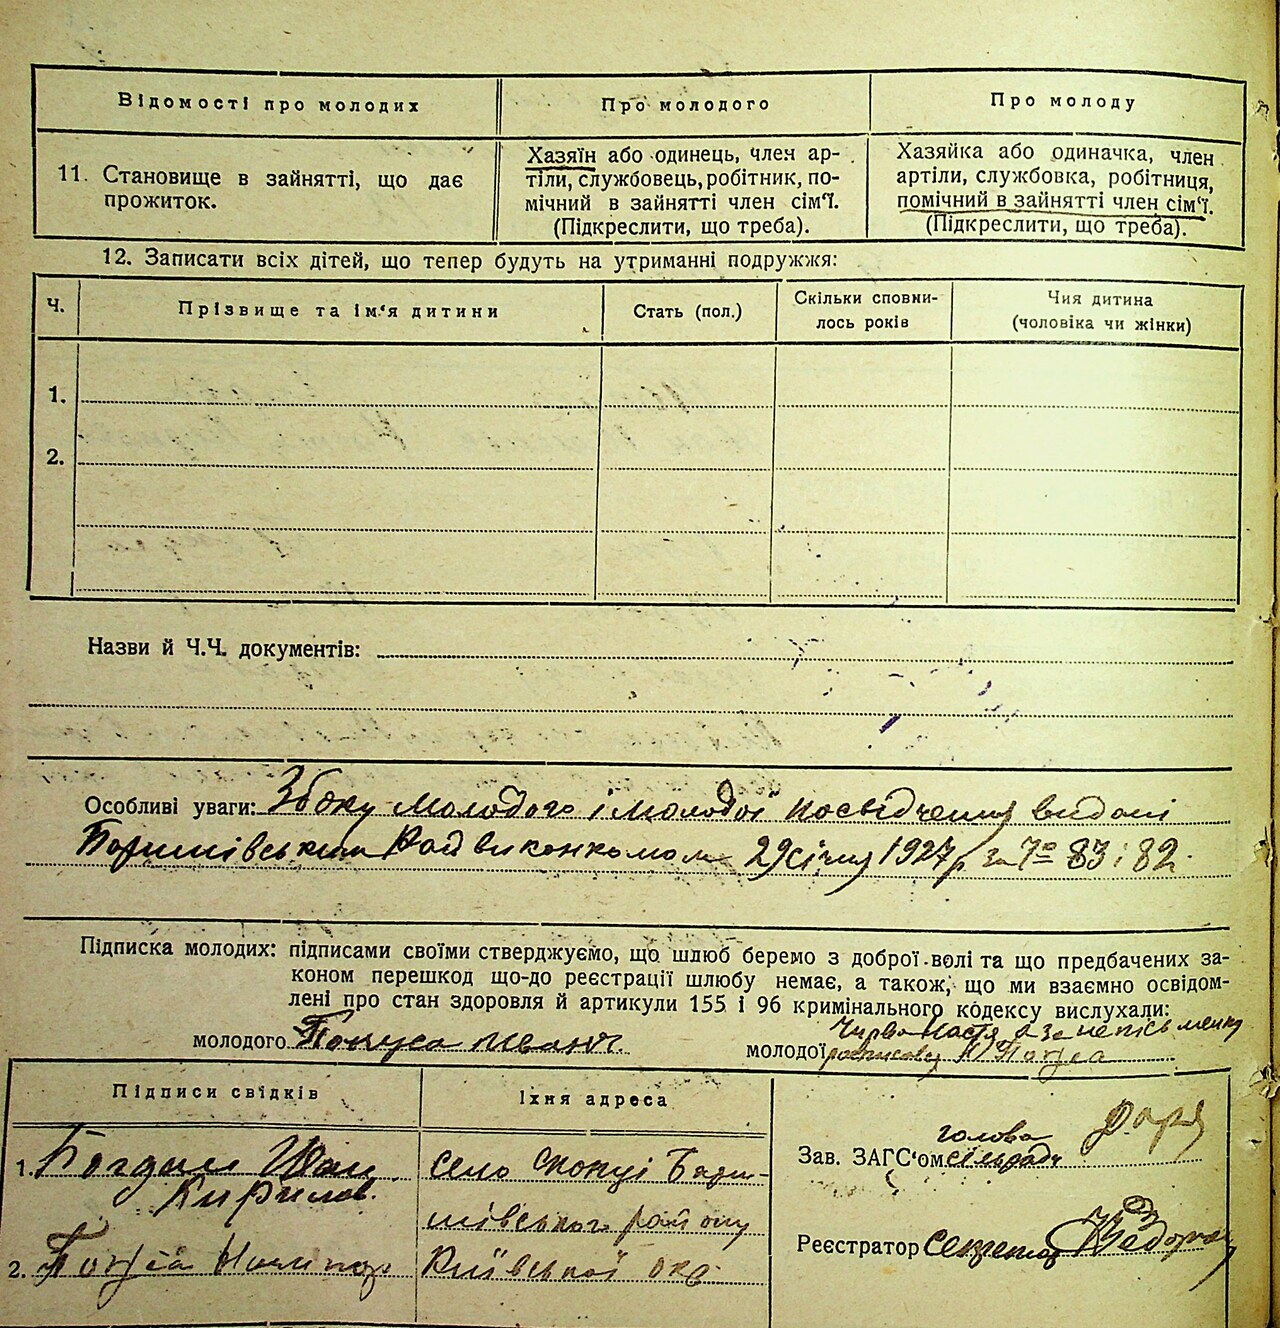 Відомості про молодих
Про молодого
Про молоду
11. Становище в зайнятті, що дає
прожиток.
Хазяїн або одинець, член ар-
тіли, службовець, робітник, по-
мічний в зайнятті член сім'ї.
(Підкреслити, що треба).
Хазяйка або одиначка, член
артіли, службовка, робітниця,
помічний в зайнятті член сім'ї.
(Підкреслити, що треба).
12. Записати всіх дітей, що тепер будуть на утриманні подружжя:
Ч.
Прізвище та ім'я дитини
Стать (пол.)
Скільки сповни-
лось років
Чия дитина
(чоловіка чи жінки)
1.
2.
Назви й Ч.Ч. документів:
Особливі уваги: Збоку молодого і молодої посвідчення видані
Баришівським Райвиконкомом 29 січня 1927 р за № 83 і 82.
Підписка молодих: підписами своїми стверджуємо, що шлюб беремо з доброї волі та що предбачених за-
коном перешкод що-до реєстрації шлюбу немає, а також, що ми взаємно освідом-
лені про стан здоровля й артикули 155 і 96 кримінального кодексу вислухали:
молодого Іван
молодої Настя а за неписьменну
Підписи свідків
Їхня адреса
1. Богдан Іван
Кирилов.
село Бари-
шівського району
2.
Київської окр.
голова
Зав. ЗАГС'ом сільради
Реєстратор секретар